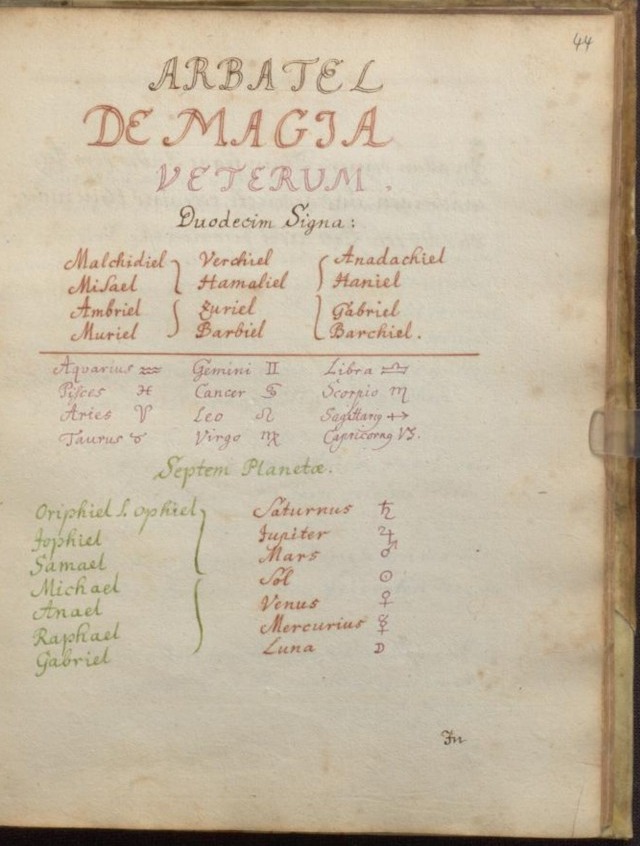 44
ARBATEL
DE MAGIA
VETERUM.
Duodecim Signa:
Malchidiel Verchiel Anadachiel
Misael Hamaliel Haniel
Ambriel Zuriel Gabriel
Muriel Barbiel Barchiel.
Aquarius ♒ Gemini ♊ Libra ♎
Pisces ♓ Cancer ♋ Scorpio ♏
Aries ♈ Leo ♌ Sagittarỹ ♐
Taurus ♉ Virgo ♍ Capricorny ♑.
Septem Planetæ.
Oriphiel s. Ophiel Saturnus ♄
Jophiel Jupiter ♃
Samael Mars ♂
Michael Sol ☉
Anael Venus ♀
Raphael Mercurius ☿
Gabriel Luna ☽
In